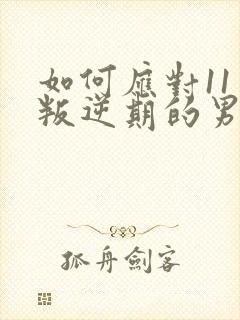 如何應對11
叛逆期的男
孤舟劍客